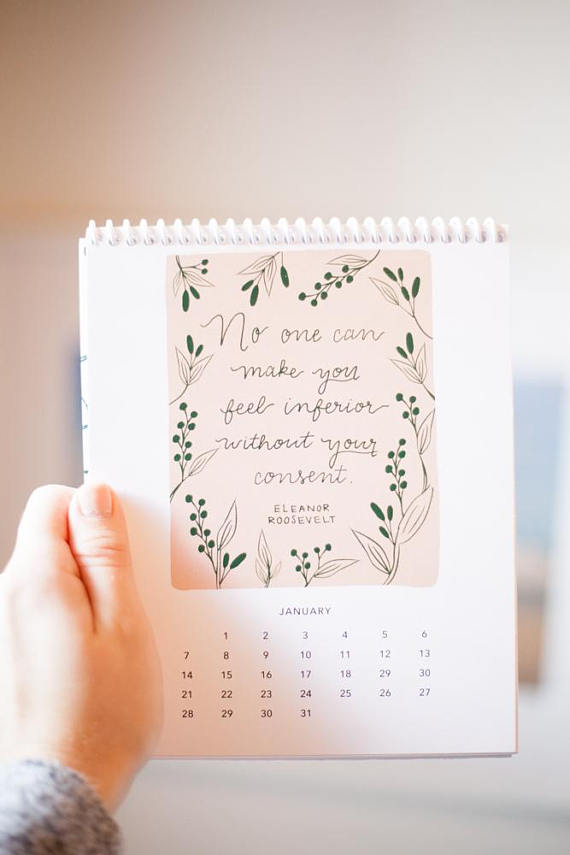 No one can
make you
feel inferior
without your
consent.
ELEANOR
ROOSEVELT
JANUARY
1 2 3 4 5 6
7 8 9 10 11 12 13
14 15 16 17 18 29 30
21 22 23 24 25 26 27
28 29 30 31